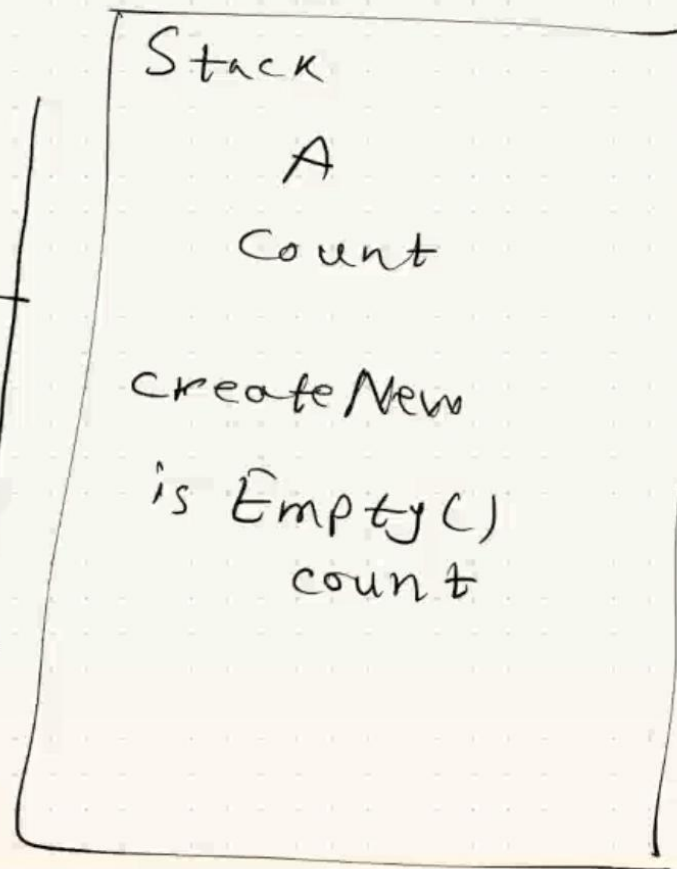 Stack
A
Count
createNew
is Empty()
count